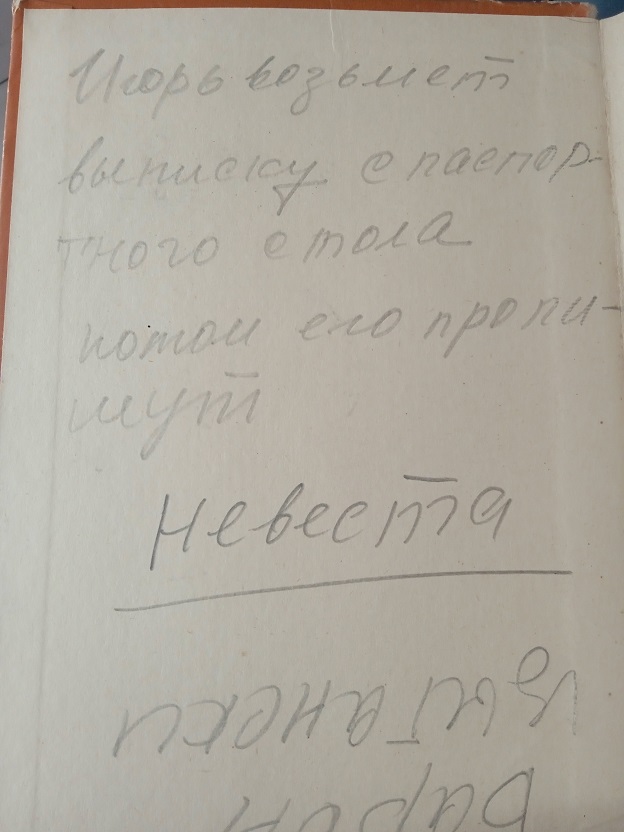 Игорь возьмет
выписку с паспор-
тного стола
потом его пропи-
шут
Невеста
Барон
цыганский